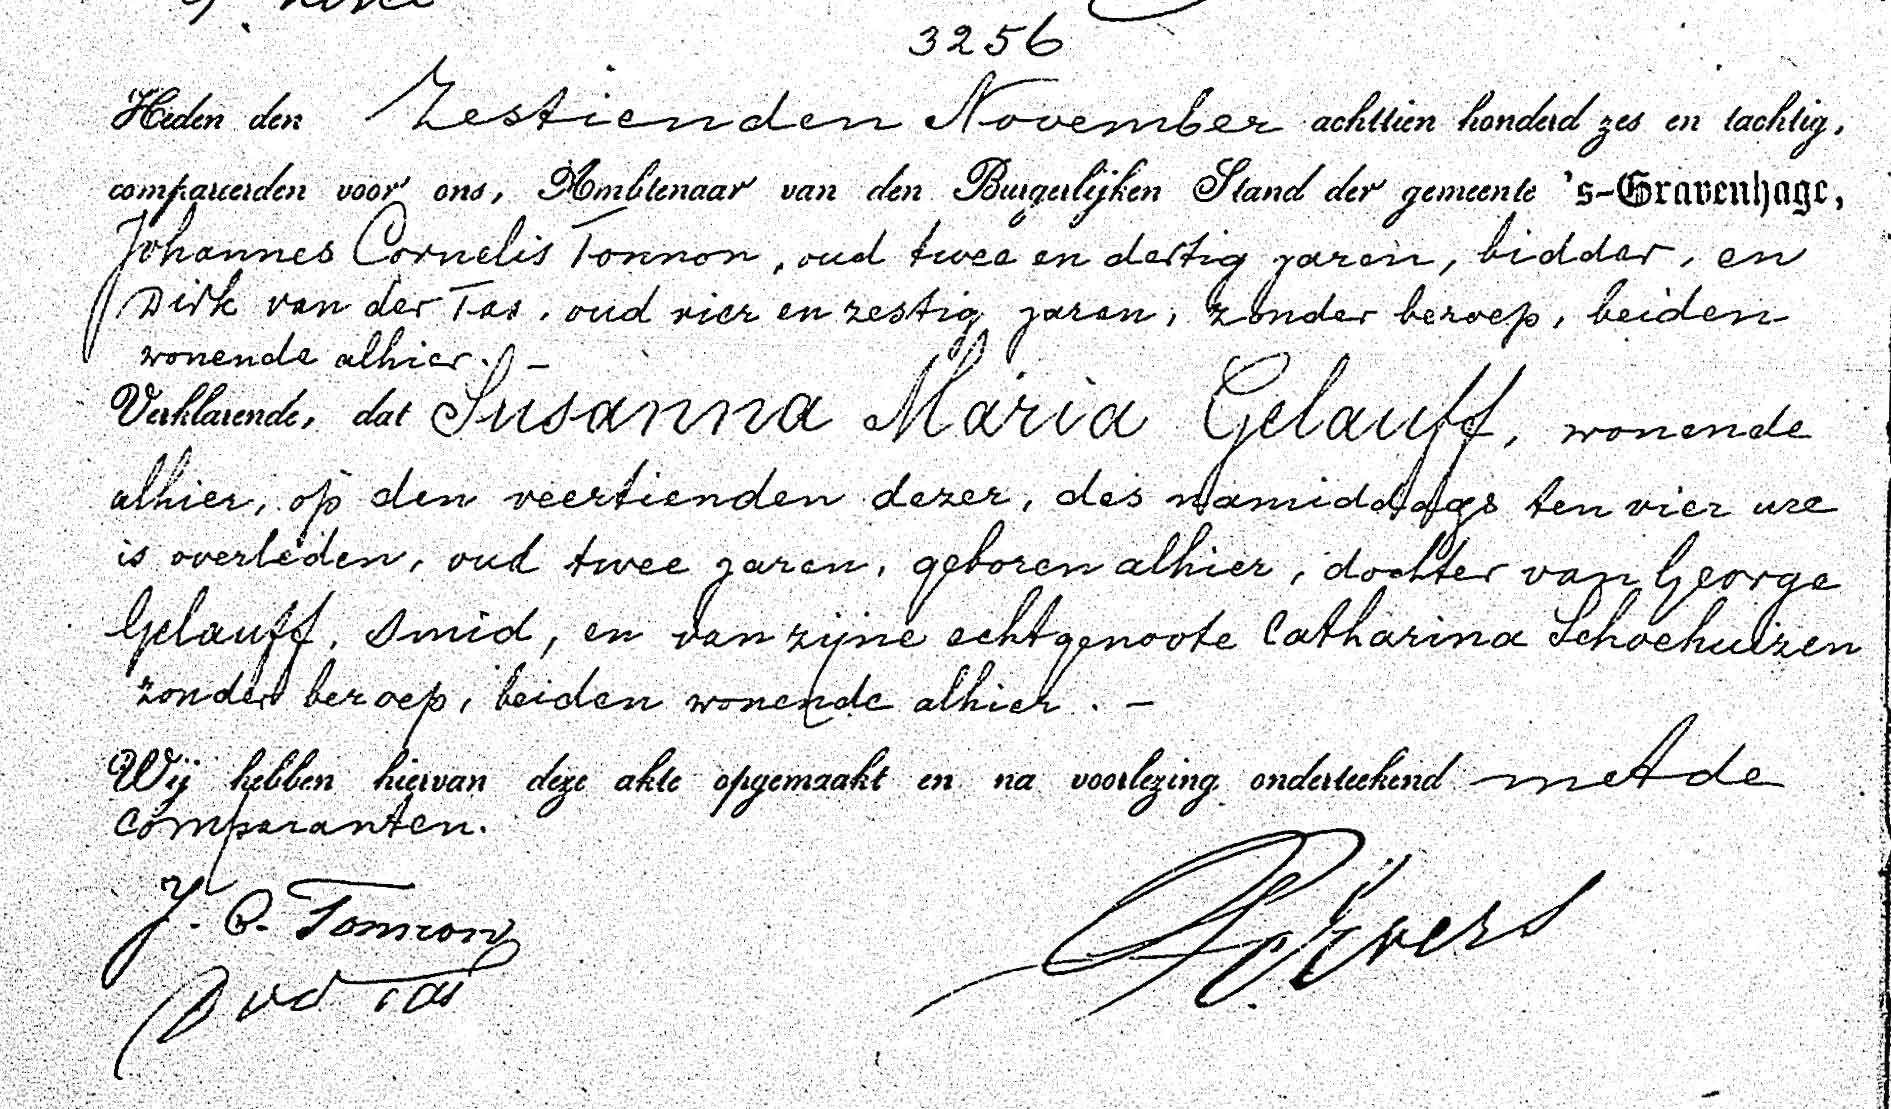 3256
Heden den Zestienden November achttien honderd zes en tachtig,
compareerden voor ons, Ambtenaar van den Burgerlijken Stand der gemeente 's-Gravenhage,
Johannes Cornelis Tonnon, oud twee en dertig jaren, bidder, en
Dirk van der Tas, oud vier en zestig jaren, zonder beroep, beiden
wonende alhier. –
Verklarende, dat Susanna Maria Gelauff, wonende
alhier, op den veertienden dezer, des namiddags ten vier ure
is overleden, oud twee jaren, geboren alhier, dochter van George
Gelauff, smid, en van zijne echtgenoote Catharina Schoehuizen
zonder beroep, beiden wonende alhier. –
Wij hebben hiervan deze akte opgemaakt en na voorlezing onderteekend met de
comparanten.
J. C. Tonnon
D vd Tas